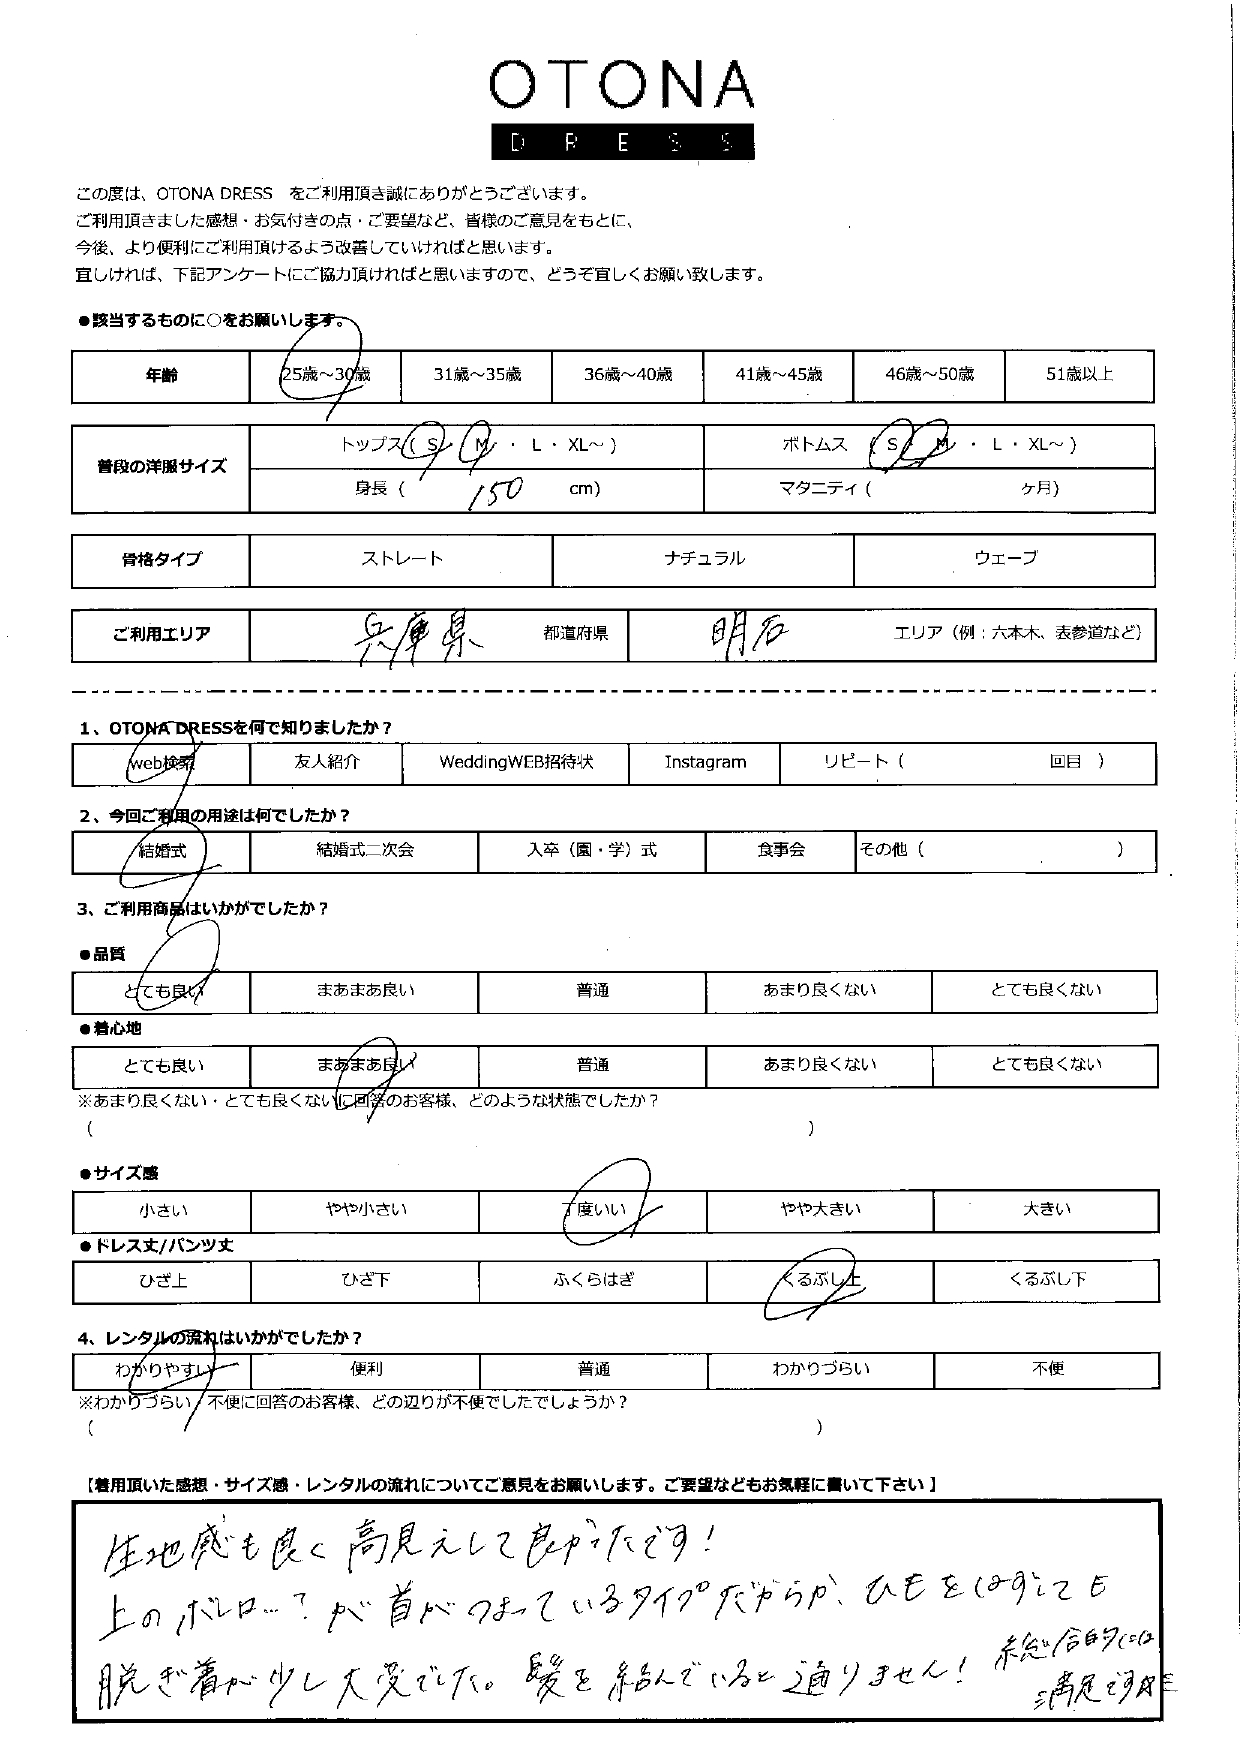 OTONA
DRESS
この度は、OTONA DRESS をご利用頂き誠にありがとうございます。
ご利用頂きました感想・お気付きの点・ご要望など、皆様のご意見をもとに、
今後、より便利にご利用頂けるよう改善していければと思います。
宜しければ、下記アンケートにご協力頂ければと思いますので、どうぞ宜しくお願い致します。
●該当するものに○をお願いします。
年齢 25歳～30歳 31歳～35歳 36歳～40歳 41歳～45歳 46歳～50歳 51歳以上
普段の洋服サイズ トップス( S・M ・ L ・ XL～ ) ボトムス ( S・M ・ L ・ XL～ )
身長 ( 150 cm) マタニティ ( ヶ月)
骨格タイプ ストレート ナチュラル ウェーブ
ご利用エリア 兵庫県 都道府県 明石 エリア（例：六本木、表参道など）
1、OTONA DRESSを何で知りましたか？
web検索 友人紹介 WeddingWEB招待状 Instagram リピート（ 回目 ）
2、今回ご利用の用途は何でしたか？
結婚式 結婚式二次会 入卒（園・学）式 食事会 その他（ ）
3、ご利用商品はいかがでしたか？
●品質
とても良い まあまあ良い 普通 あまり良くない とても良くない
●着心地
とても良い まあまあ良い 普通 あまり良くない とても良くない
※あまり良くない・とても良くないに回答のお客様、どのような状態でしたか？
( )
●サイズ感
小さい やや小さい 丁度いい やや大きい 大きい
●ドレス丈/パンツ丈
ひざ上 ひざ下 ふくらはぎ くるぶし上 くるぶし下
4、レンタルの流れはいかがでしたか？
わかりやすい 便利 普通 わかりづらい 不便
※わかりづらい/不便に回答のお客様、どの辺りが不便でしたでしょうか？
( )
【着用頂いた感想・サイズ感・レンタルの流れについてご意見をお願いします。ご要望などもお気軽に書いて下さい】
生地感も良く高見えして良かったです！
上のボレロ…？が首がつまっているタイプだからか、ひもをはずしても
脱ぎ着が少し大変でした。髪を結んでいると通りません！
総合的には
満足です